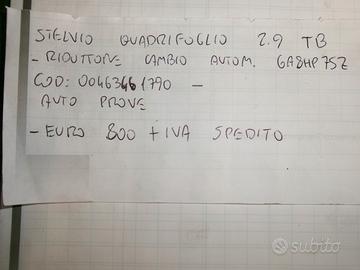 STELVIO QUADRIFOGLIO 2.9 TB
- RIDUTTORE CAMBIO AUTOM. GA8HP75Z
COD: 00463461790 -
AUTO PROVE
- EURO 800 + IVA SPEDITO
subito